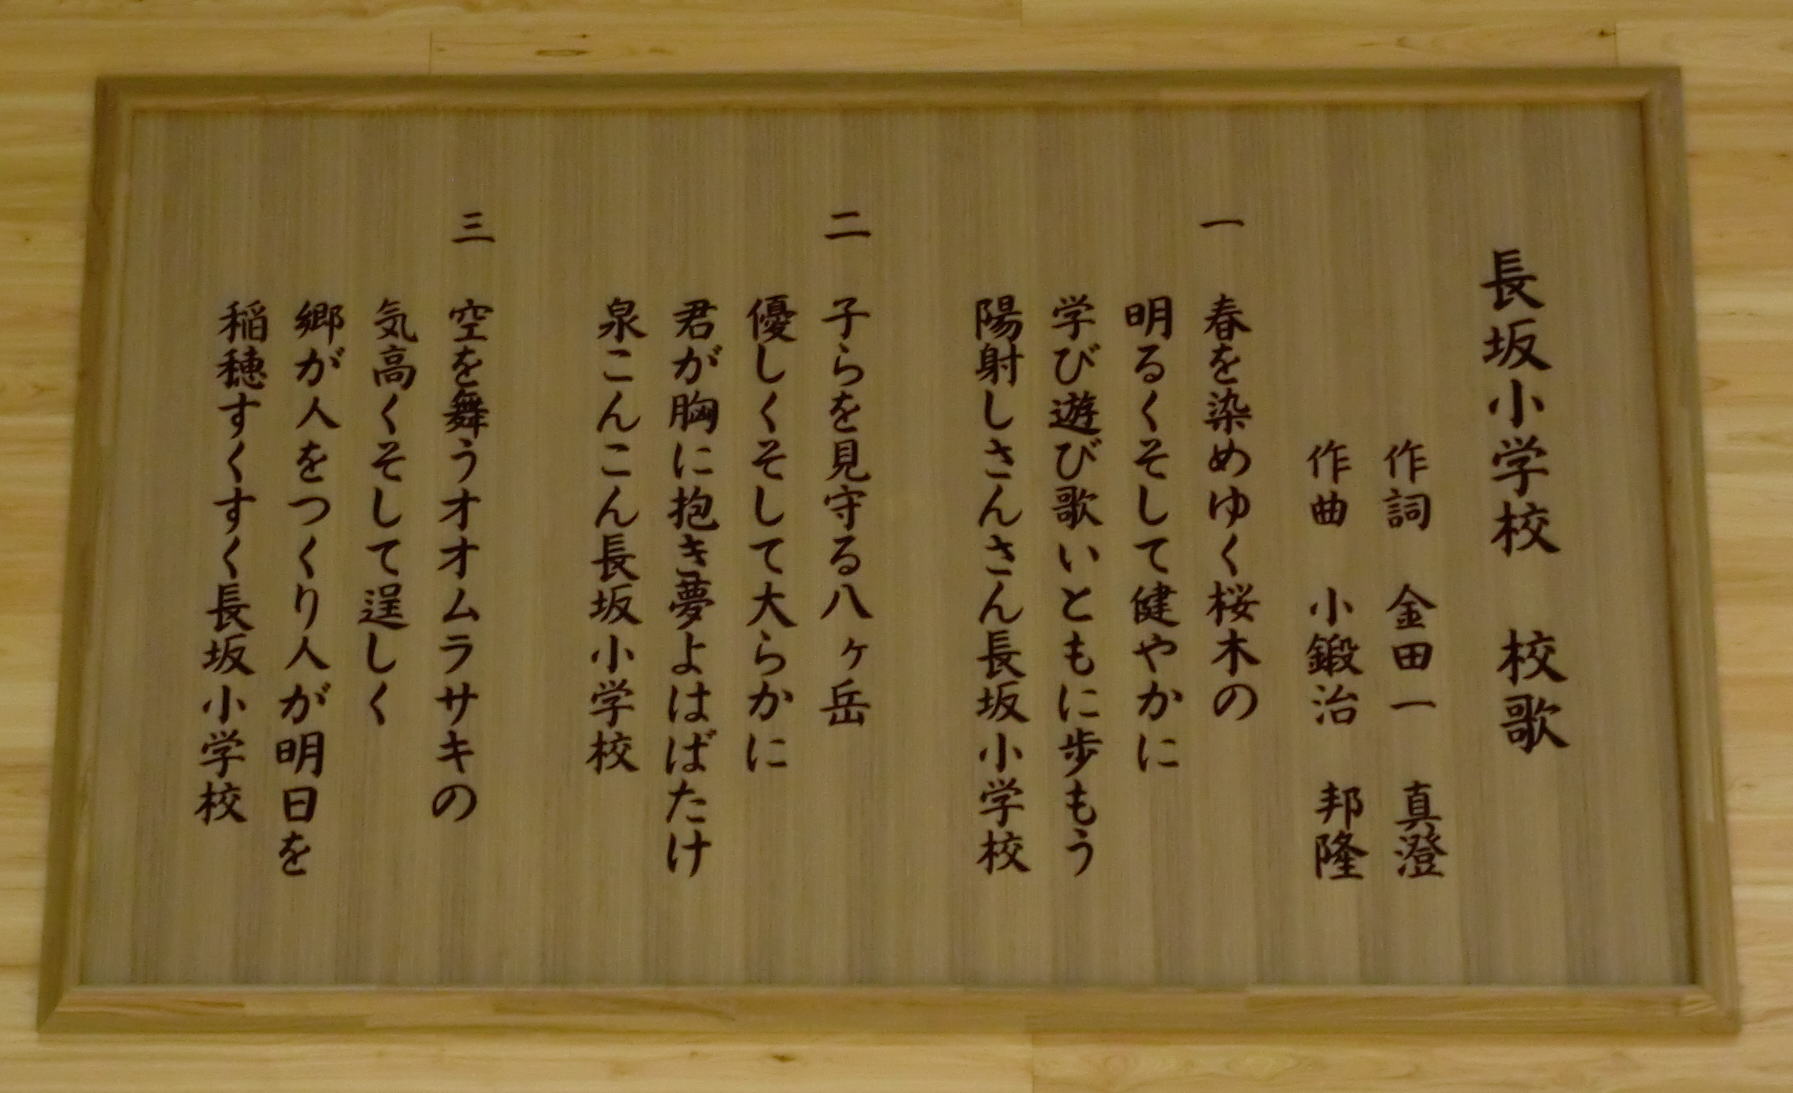 長坂小学校　校歌
作詞　金田一　真澄
作曲　小鍛治　邦隆
一　春を染めゆく桜木の
明るくそして健やかに
学び遊び歌いともに歩もう
陽射しさんさん長坂小学校
二　子らを見守る八ヶ岳
優しくそして大らかに
君が胸に抱き夢よはばたけ
泉こんこん長坂小学校
三　空を舞うオオムラサキの
気高くそして逞しく
郷が人をつくり人が明日を
稲穂すくすく長坂小学校